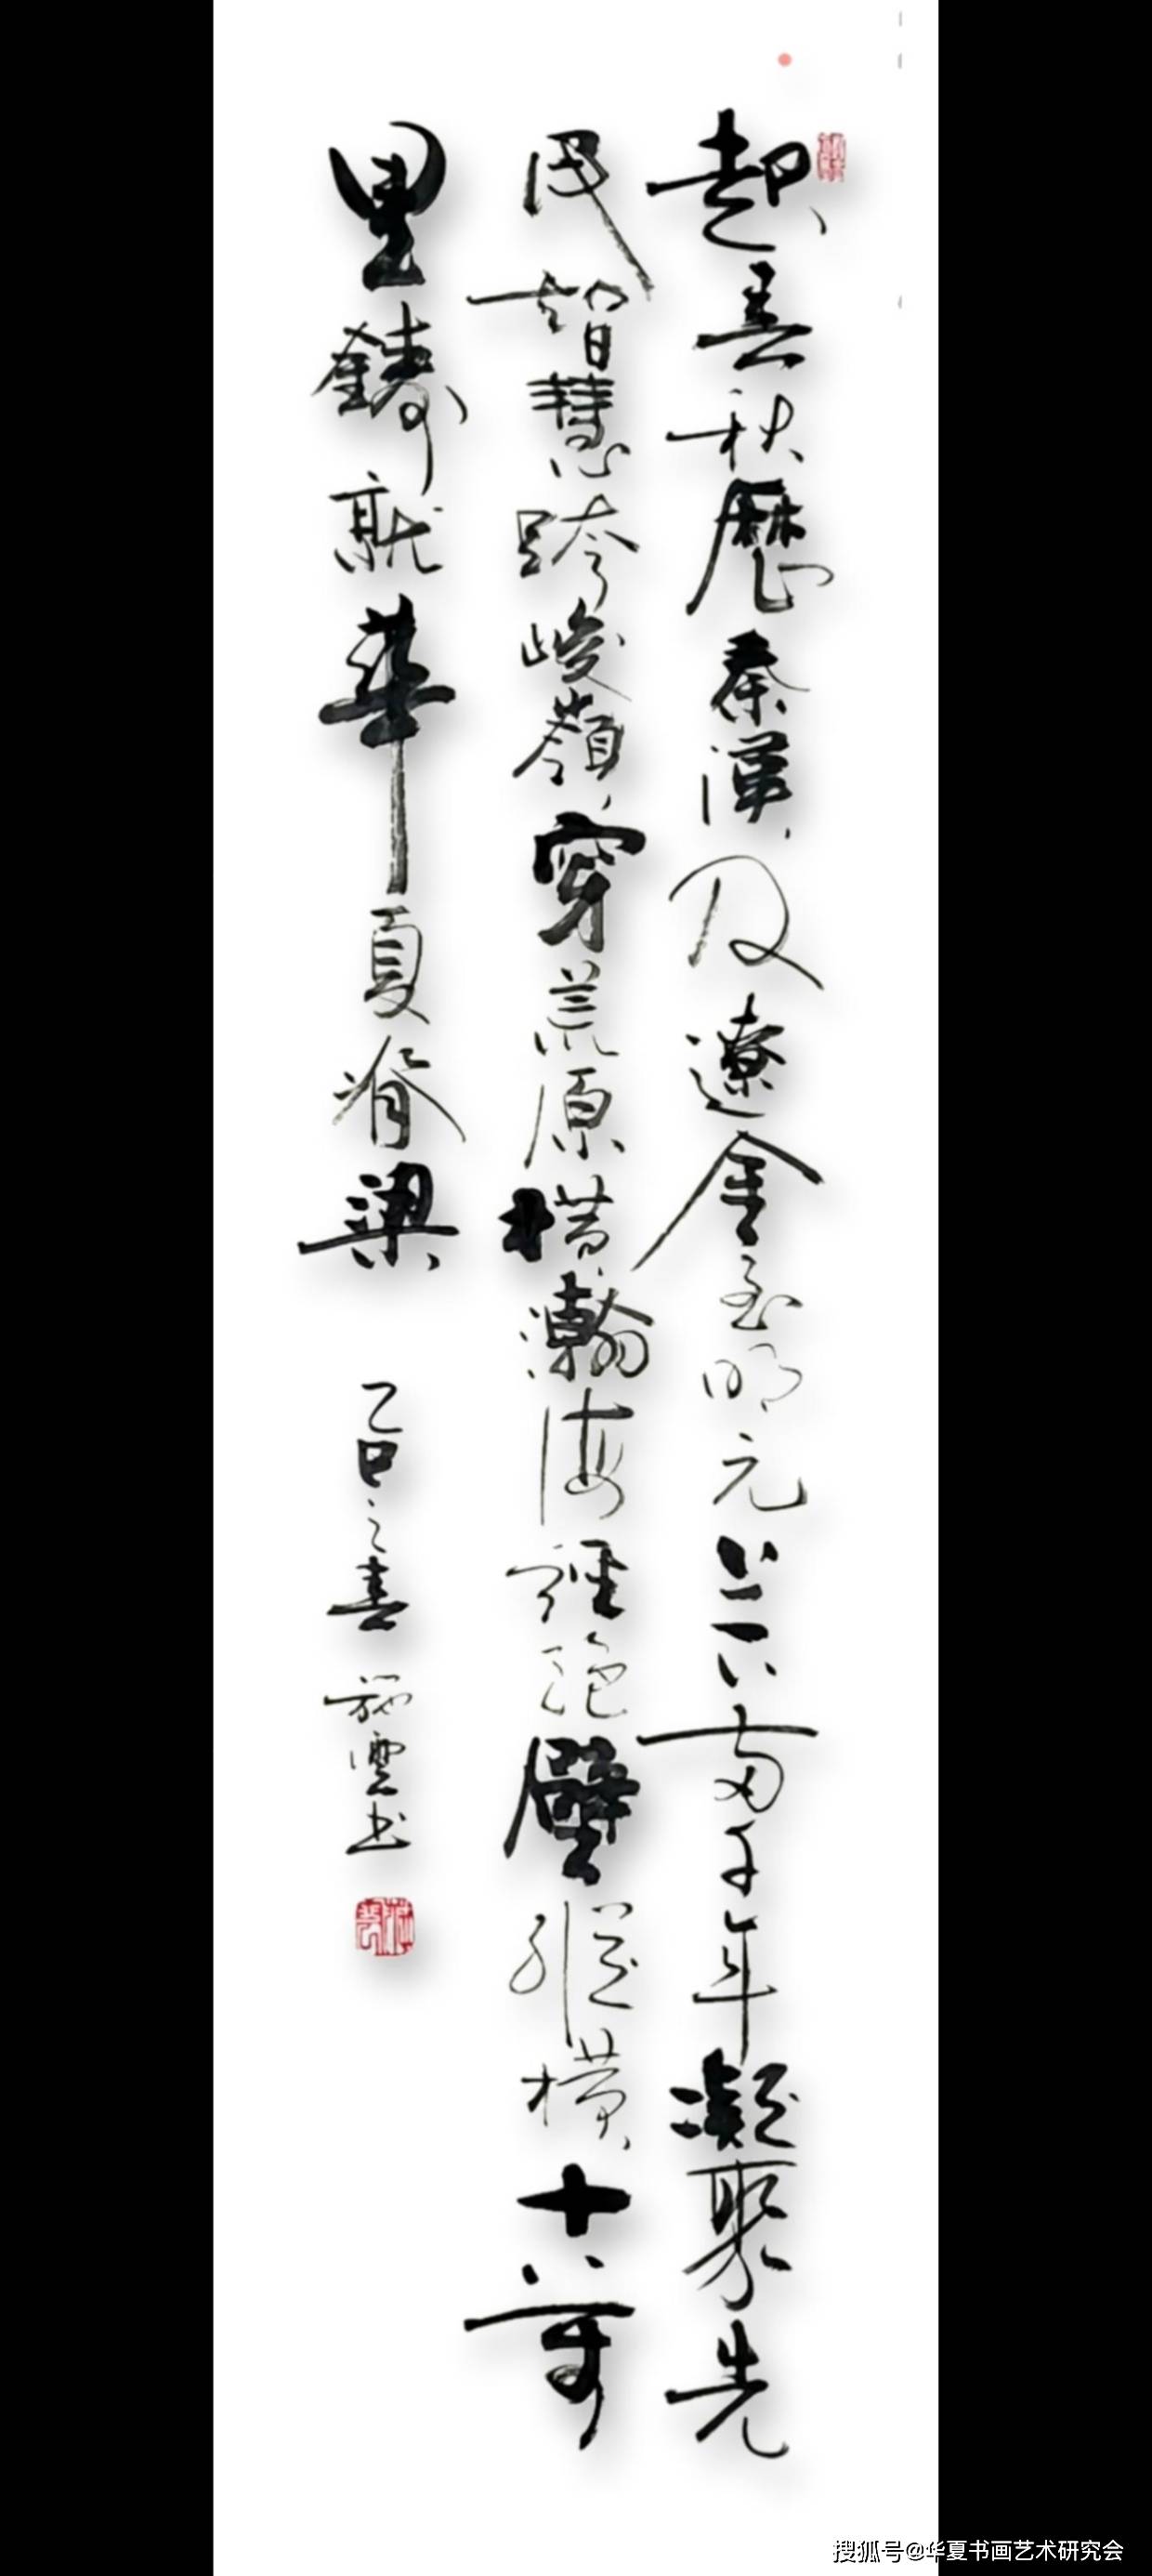 起春秋歷秦漢及遼金至明元上下兩千年凝聚先
民智慧跨峻嶺穿荒原橫瀚海經絕壁縱橫十萬
里鑄就華夏脊梁
乙巳之春 施雲书
搜狐号@华夏书画艺术研究会